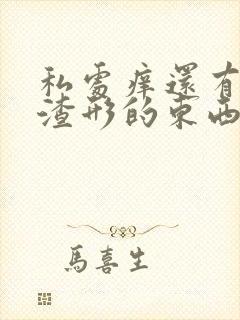 私處痒還有
渣形的東西
馬喜生